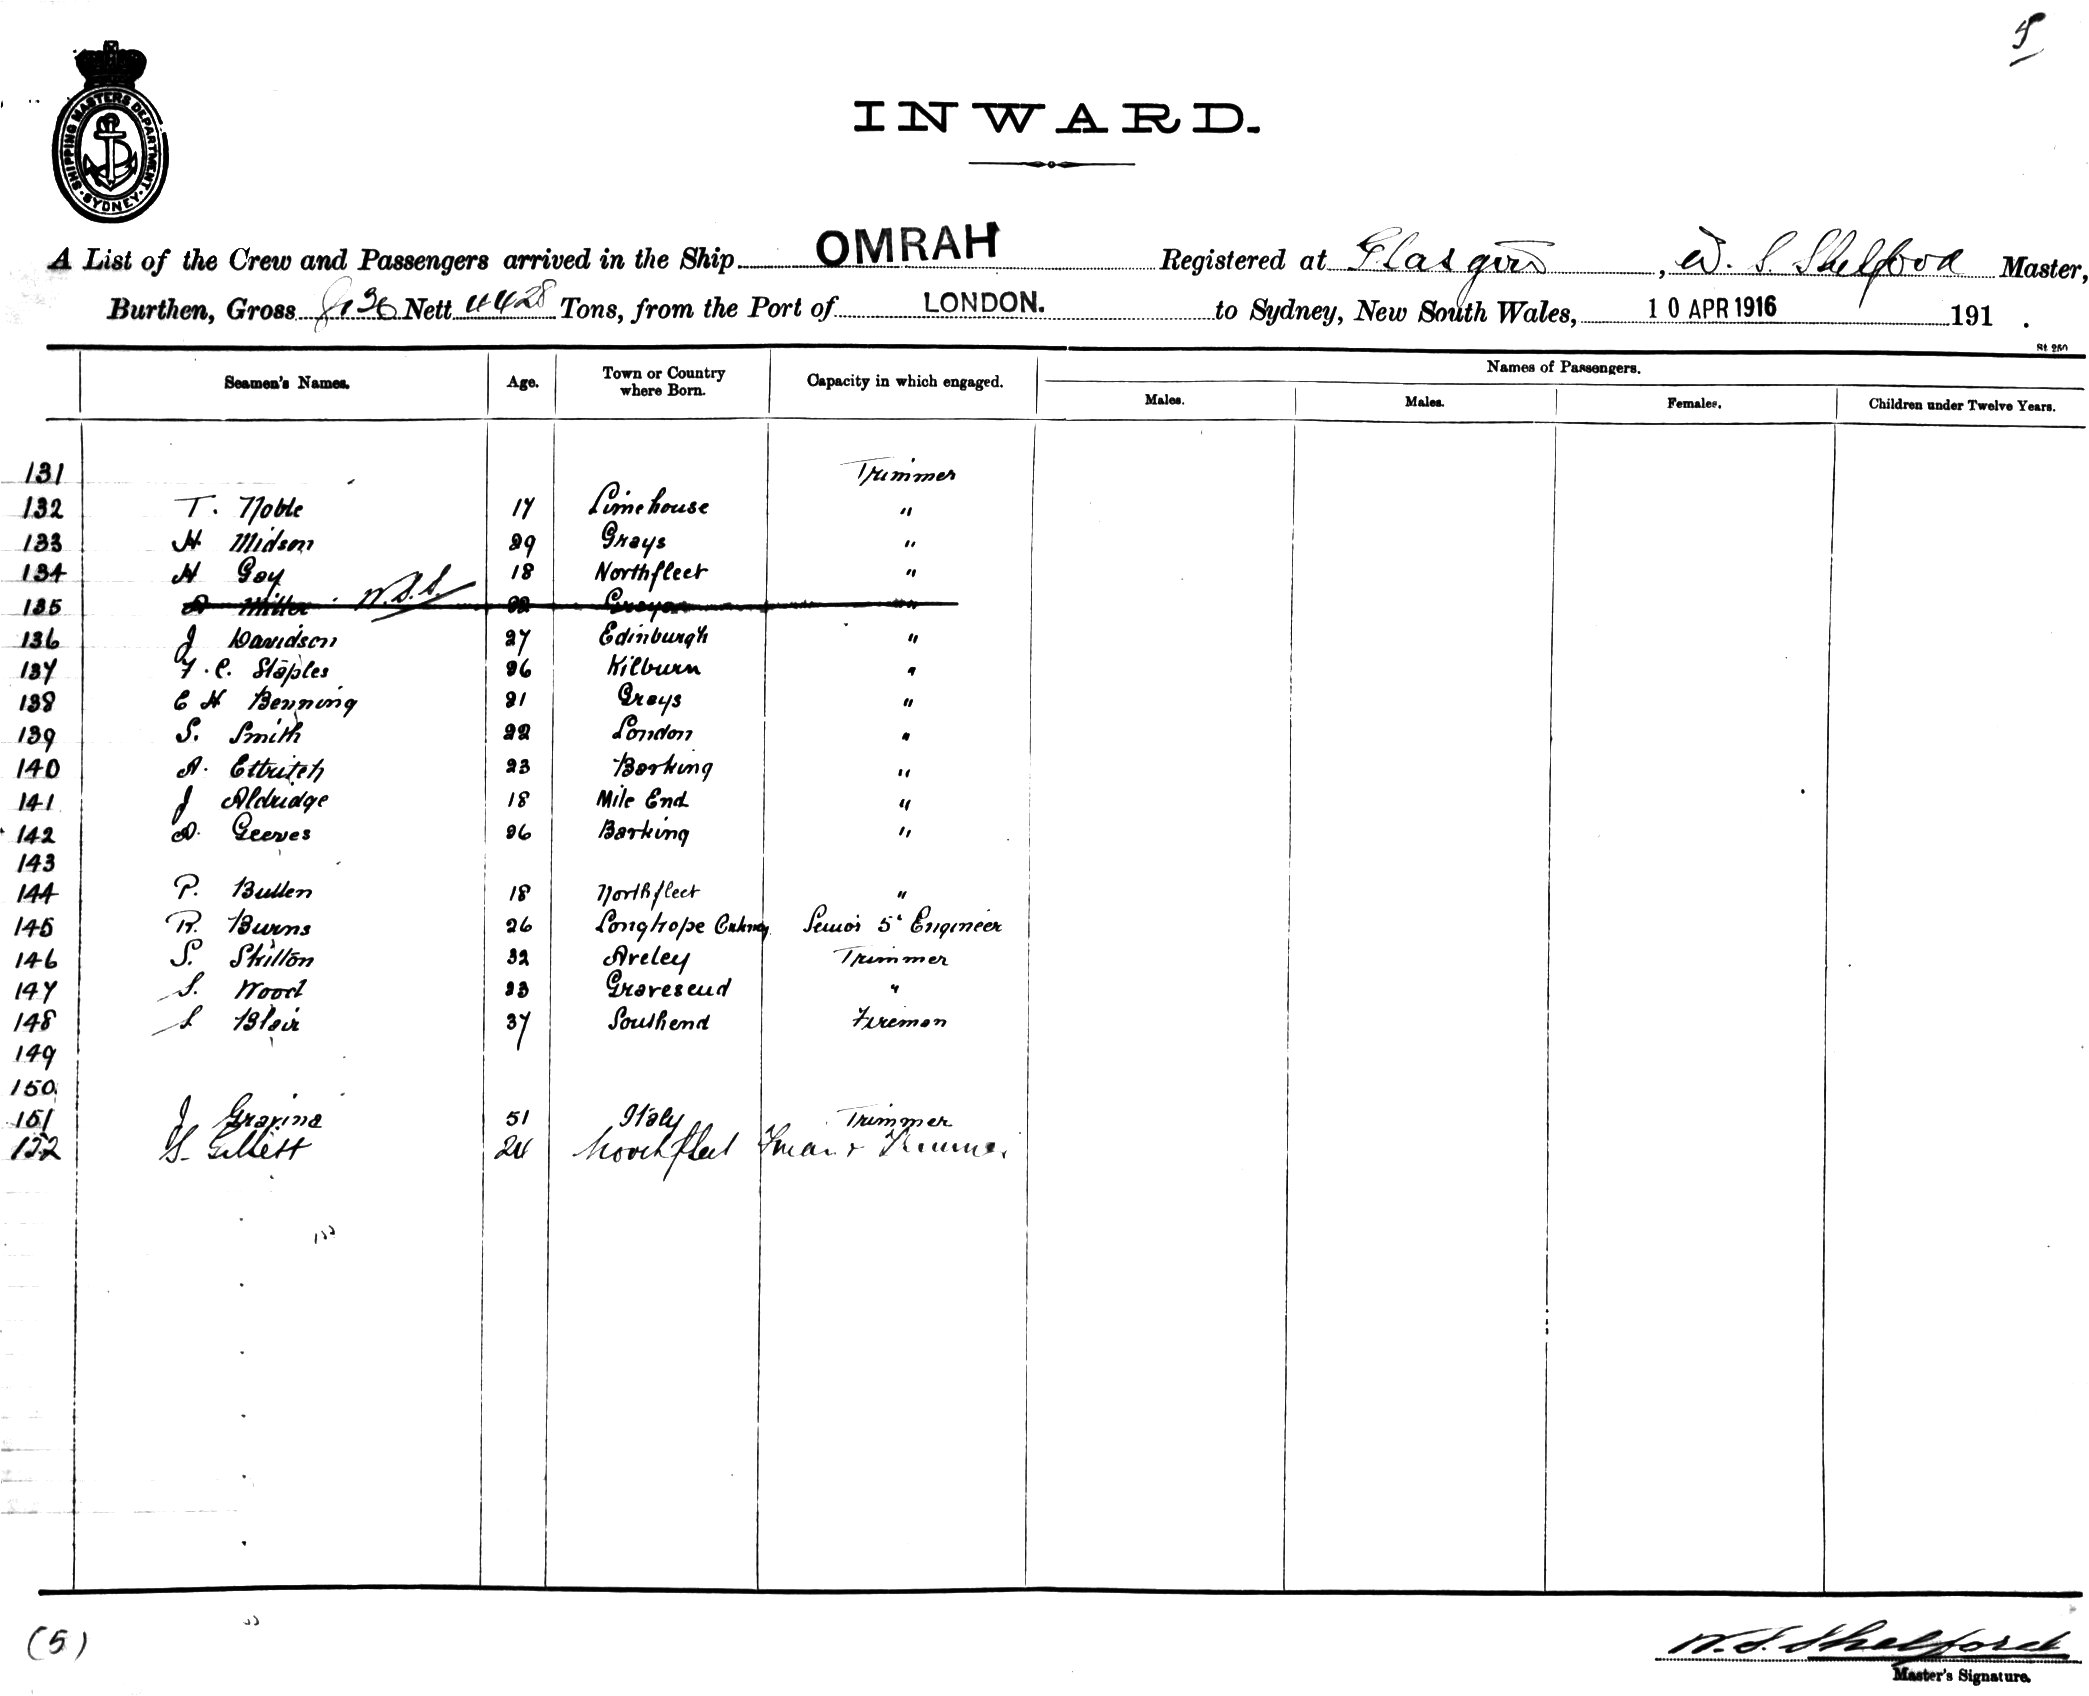 5
SHIPPING MASTERS DEPARTMENT
SYDNEY
INWARD.
A List of the Crew and Passengers arrived in the Ship OMRAH Registered at Glasgow, W. S. Shelford Master,
Burthen, Gross 8130 Nett 4428 Tons, from the Port of LONDON. to Sydney, New South Wales, 10 APR 1916 191 .
St 250
Seamen's Names. Age. Town or Country where Born. Capacity in which engaged. Names of Passengers.
Males. Males. Females. Children under Twelve Years.
131 Trimmer
132 T. Noble 17 Limehouse "
133 H Midson 29 Grays "
134 H Gay 18 Northfleet "
135 A Miller W.S.S. 22 "
136 J Davidson 27 Edinburgh "
137 F. C. Staples 26 Kilburn "
138 C H Benning 21 Grays "
139 S. Smith 22 London "
140 A. Ettritch 23 Barking "
141 J Aldridge 18 Mile End "
142 A. Geeves 26 Barking "
143
144 P. Bullen 18 Northfleet "
145 R. Burns 26 Longhope Orkney Senior 5t Engineer
146 S. Skilton 32 Aveley Trimmer
147 S. Wood 23 Gravesend "
148 S Blair 37 Southend Fireman
149
150
151 J Gravina 51 Italy Trimmer
152 G. Gillett 24 Northfleet Trimmer
(5)
W. S. Shelford
Master's Signature.